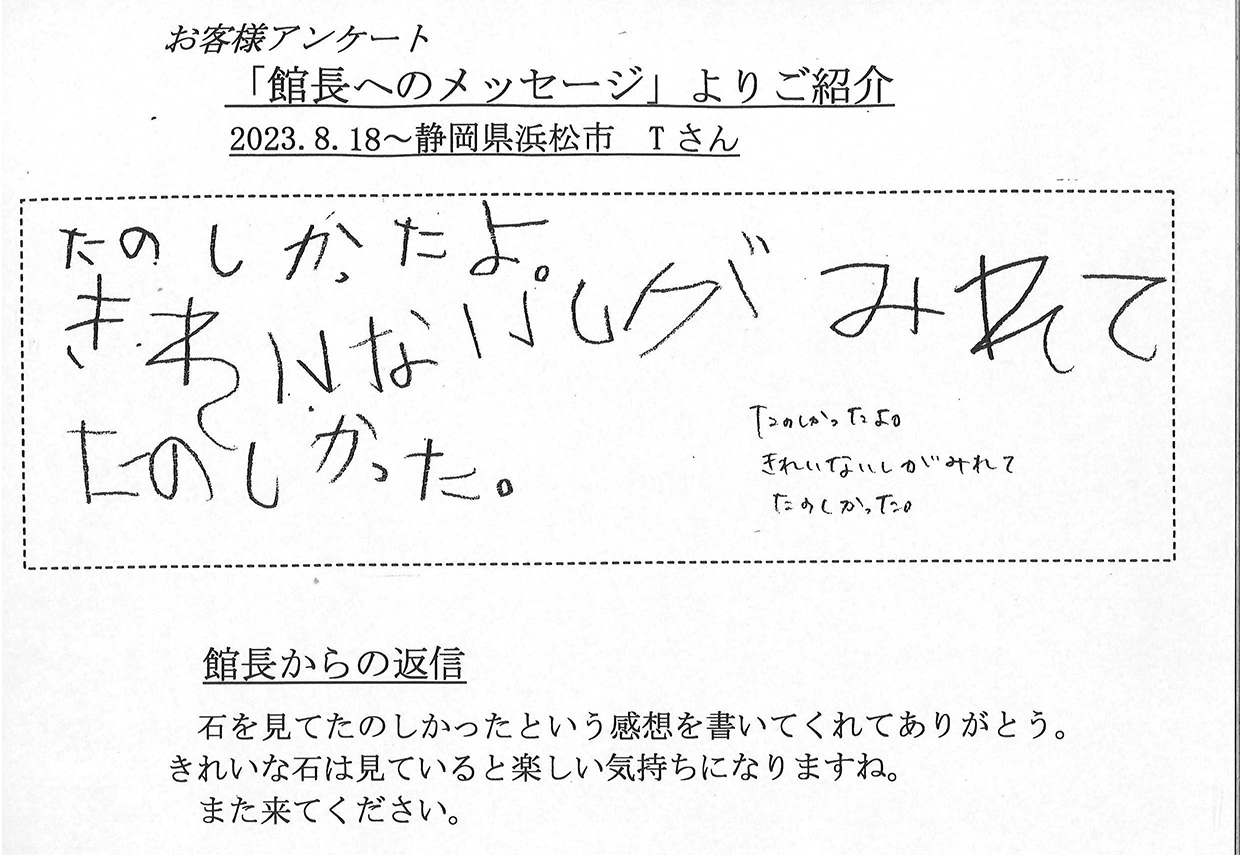 お客様アンケート
「館長へのメッセージ」よりご紹介
2023.8.18～静岡県浜松市　Tさん
たのしかったよ。
きれいないしがみれて
たのしかった。
たのしかったよ。
きれいないしがみれて
たのしかった。
館長からの返信
石を見てたのしかったという感想を書いてくれてありがとう。
きれいな石は見ていると楽しい気持ちになりますね。
また来てください。